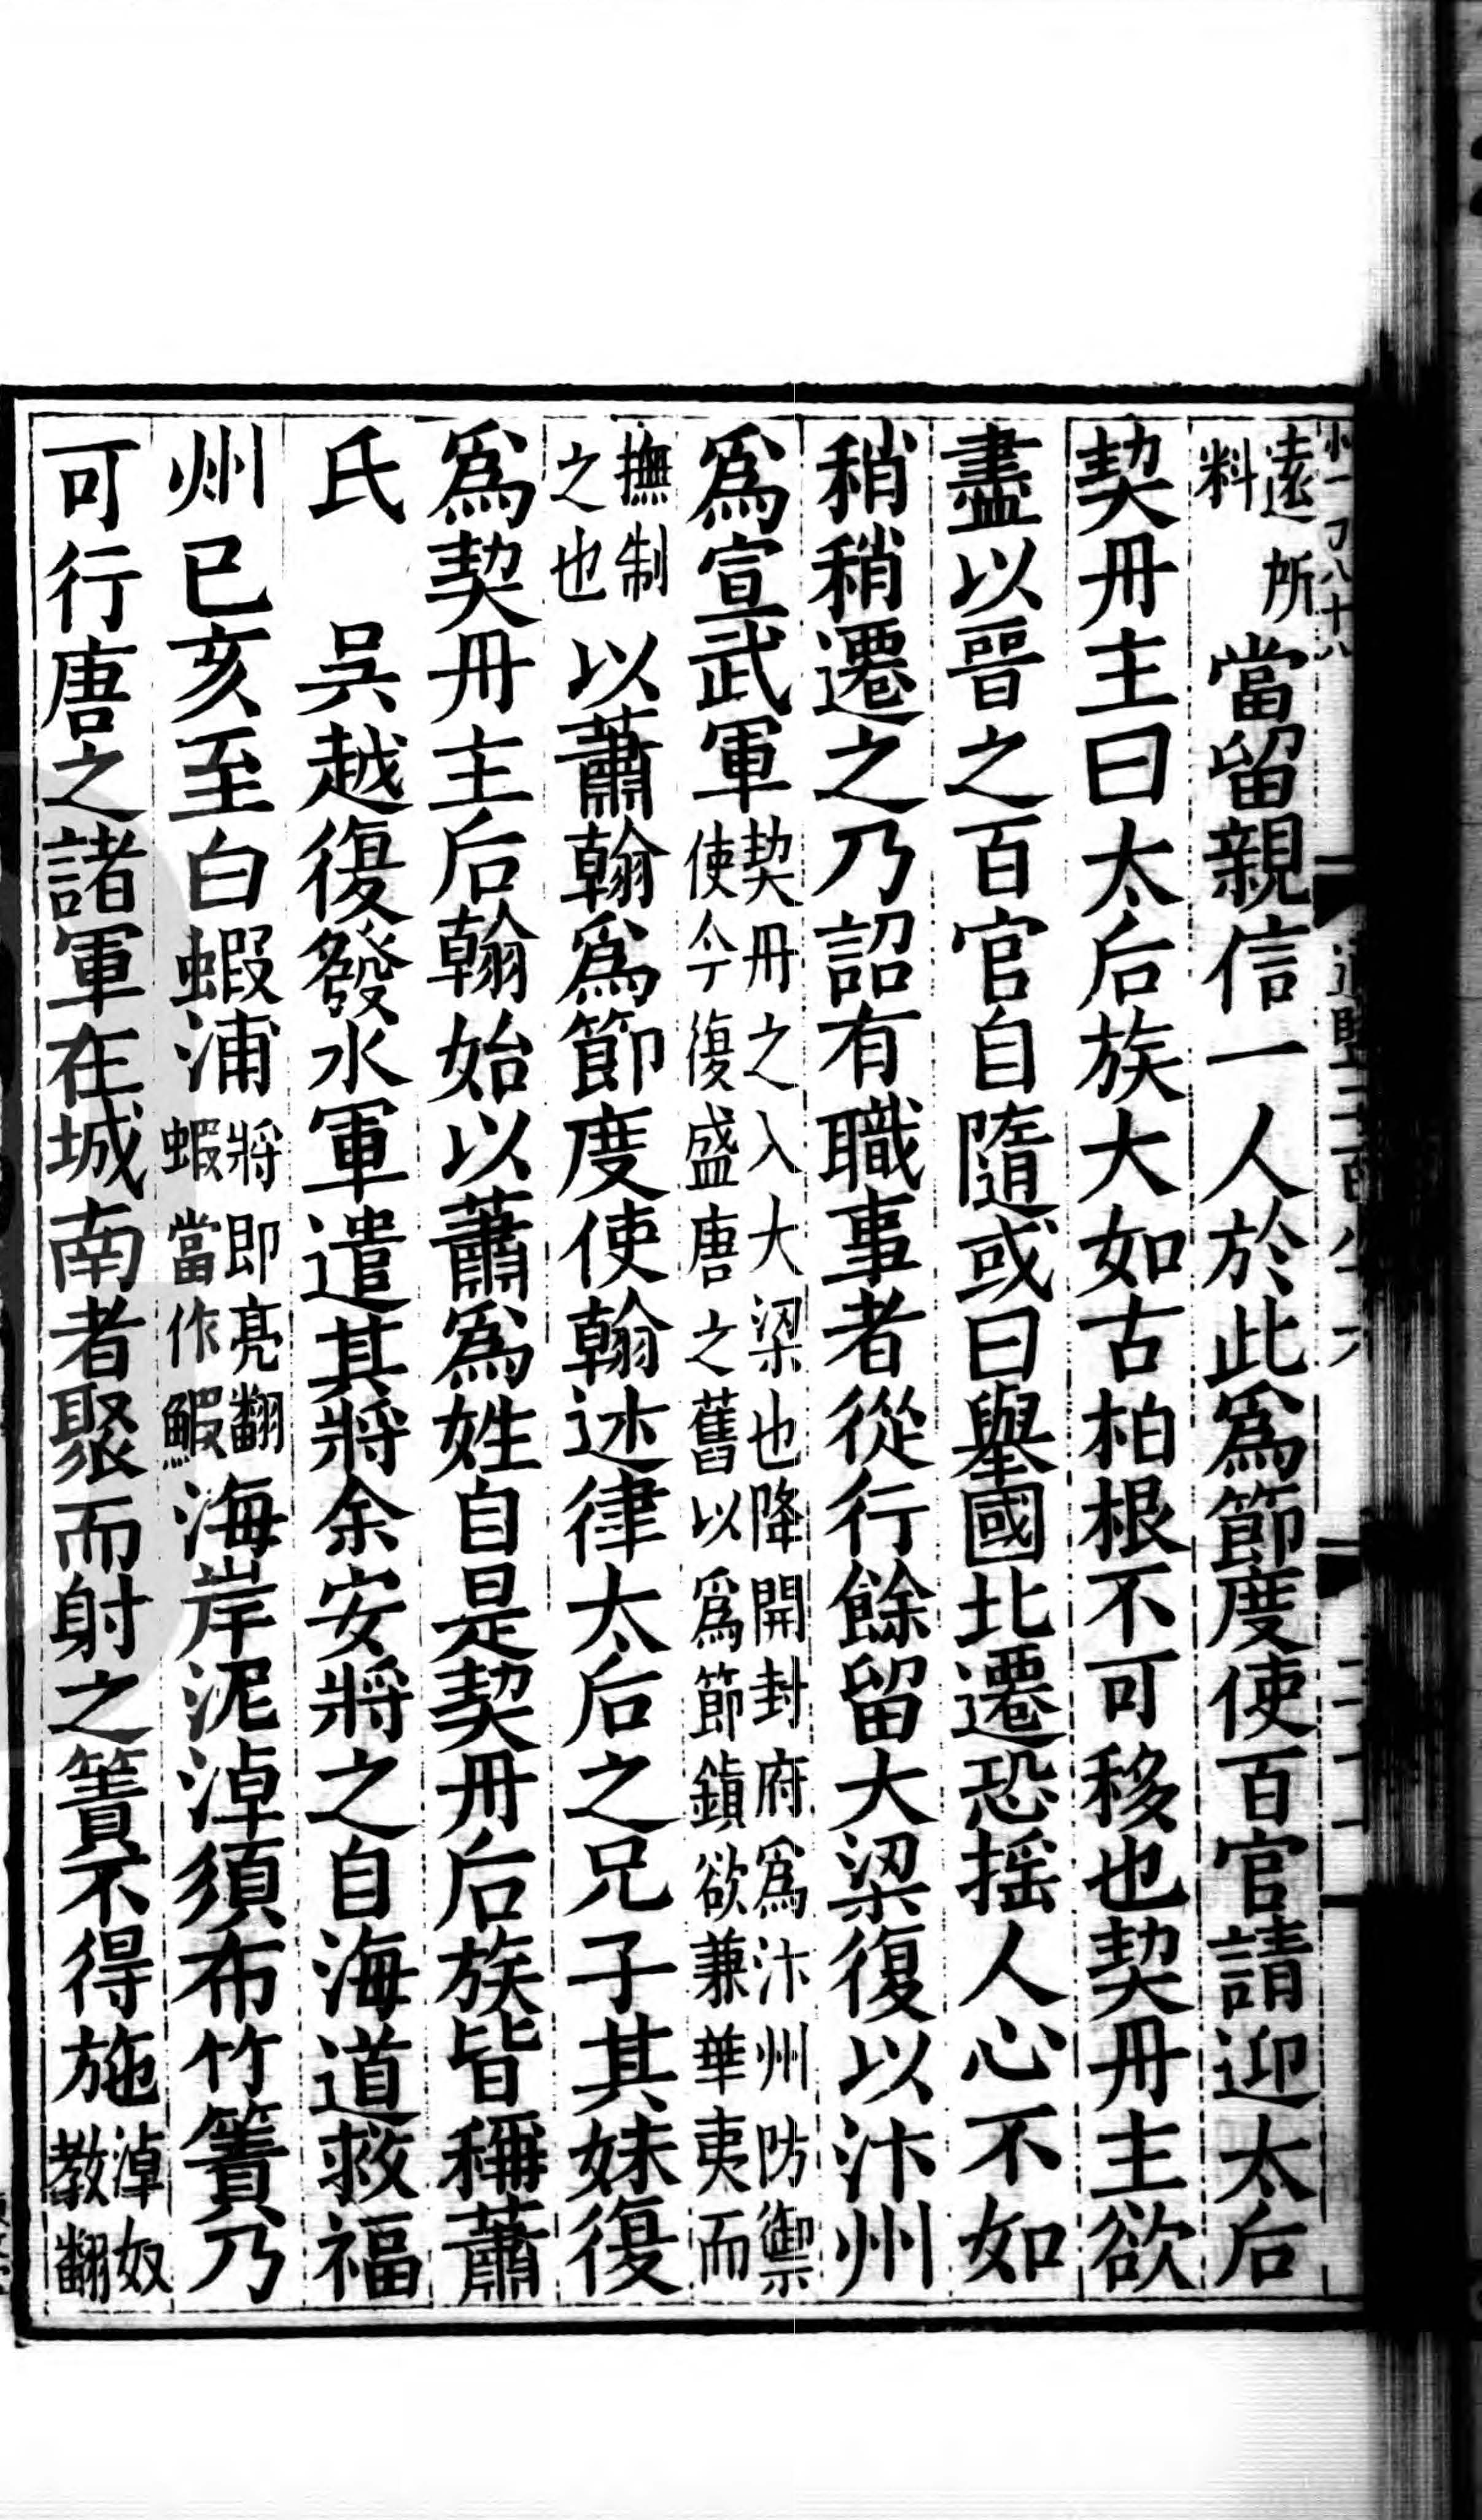 遠所料當留親信一人於此爲節度使百官請迎太后
契丹主曰太后族大如古柏根不可移也契丹主欲
盡以晉之百官自隨或曰舉國北遷恐揺人心不如
稍稍遷之乃詔有職事者從行餘留大梁復以汴州
爲宣武軍契丹之入大梁也降開封府爲汴州防禦使今復盛唐之舊以爲節鎮欲兼華夷而
撫制之也以蕭翰爲節度使翰述律太后之兄子其妹復
爲契丹主后翰始以蕭爲姓自是契丹后族皆稱蕭
氏　吳越復發水軍遣其將余安將之自海道救福
州己亥至白蝦浦將即亮翻蝦當作鰕海岸泥淖須布竹簀乃
可行唐之諸軍在城南者聚而射之簀不得施淖奴教翻